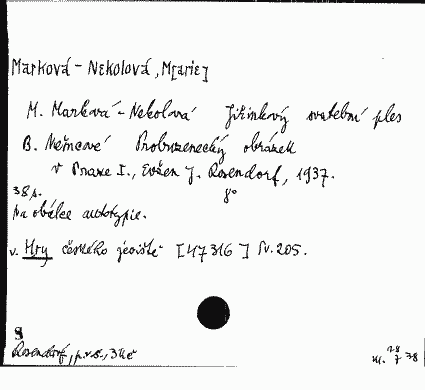 Marková-Nekolová, M[arie]
M. Marková-Nekolová Jiřinkový svatební ples
B. Němcové Probuzenecký obrázek
v Praze I., Evžen J. Rosendorf, 1937.
38 s. 8°
Na obálce autotypie.
v. Hry českého jeviště [47316] Sv. 205.
8
Rosendorf,
28
7 38